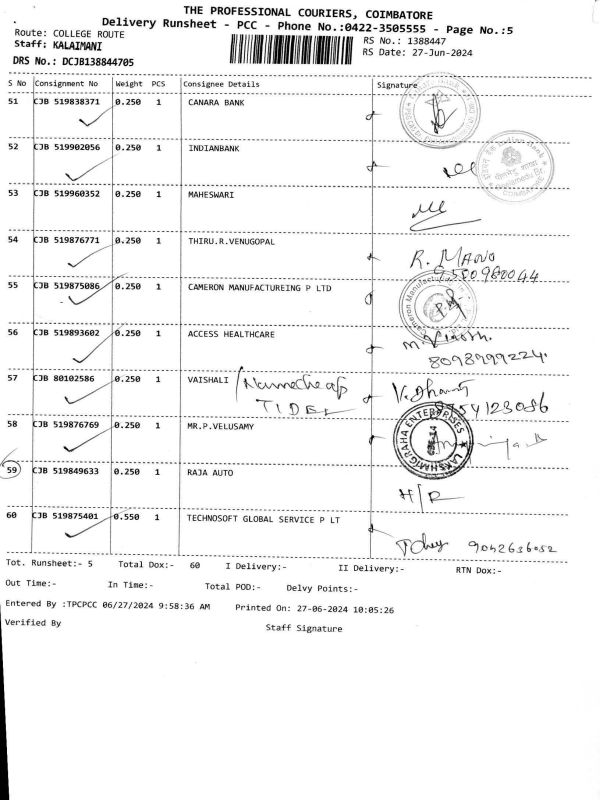 THE PROFESSIONAL COURIERS, COIMBATORE
Delivery Runsheet - PCC - Phone No.:0422-3505555 - Page No.:5
Route: COLLEGE ROUTE
RS No.: 1388447
Staff: KALAIMANI
RS Date: 27-Jun-2024
DRS No.: DCJB138844705
S No Consignment No Weight PCS Consignee Details Signature
51 CJB 519838371 0.250 1 CANARA BANK
52 CJB 519902056 0.250 1 INDIANBANK
53 CJB 519960352 0.250 1 MAHESWARI
54 CJB 519876771 0.250 1 THIRU.R.VENUGOPAL R. MANO
9550980044
55 CJB 519875086 0.250 1 CAMERON MANUFACTUREING P LTD
56 CJB 519893602 0.250 1 ACCESS HEALTHCARE M. Vinoth.
8098999224.
57 CJB 80102586 0.250 1 VAISHALI / Namecheap
TIDEL
58 CJB 519876769 0.250 1 MR.P.VELUSAMY
LAKSHMIGRAHA ENTERPRISES
59 CJB 519849633 0.250 1 RAJA AUTO
H/R
60 CJB 519875401 0.550 1 TECHNOSOFT GLOBAL SERVICE P LT
9042636052
Tot. Runsheet:- 5 Total Dox:- 60 I Delivery:- II Delivery:- RTN Dox:-
Out Time:- In Time:- Total POD:- Delvy Points:-
Entered By :TPCPCC 06/27/2024 9:58:36 AM Printed On: 27-06-2024 10:05:26
Verified By Staff Signature